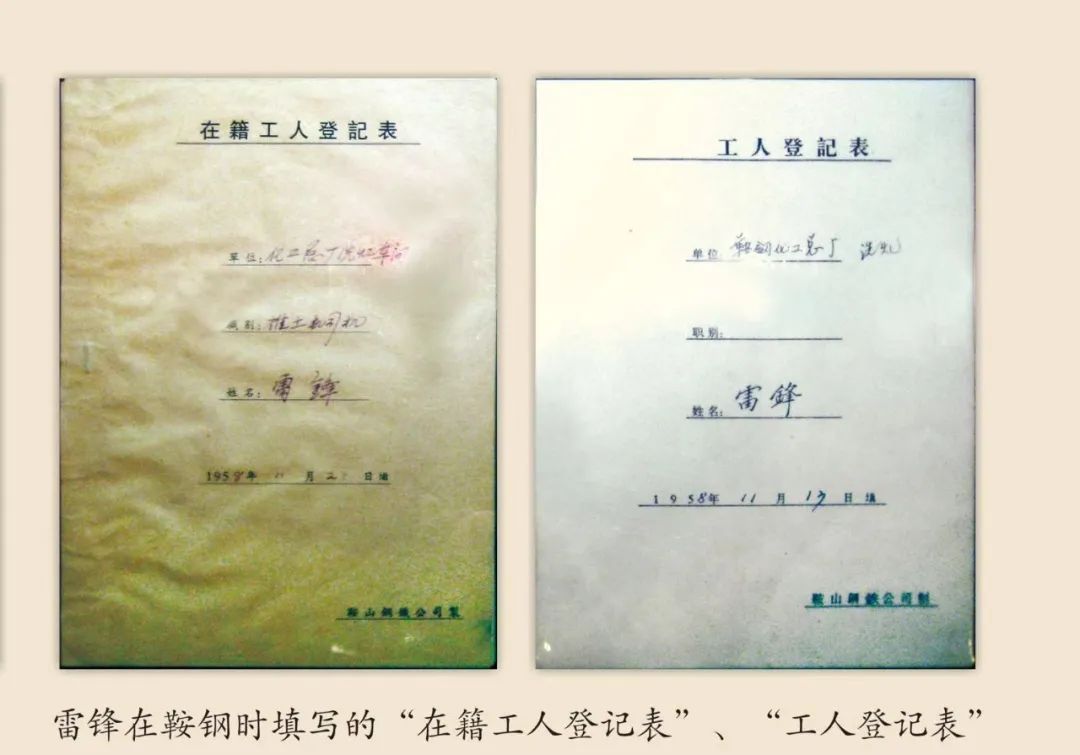 在籍工人登記表
單位：化工总厂洗煤车间
职别：推土机司机
姓名：雷锋
1958年 11 月 2 日填
鞍山鋼鐵公司製
工人登記表
单位 鞍钢化工总厂 洗煤
职别：
姓名：雷鋒
1958年 11 月 13 日填
鞍山鋼鐵公司製
雷锋在鞍钢时填写的“在籍工人登记表”、“工人登记表”